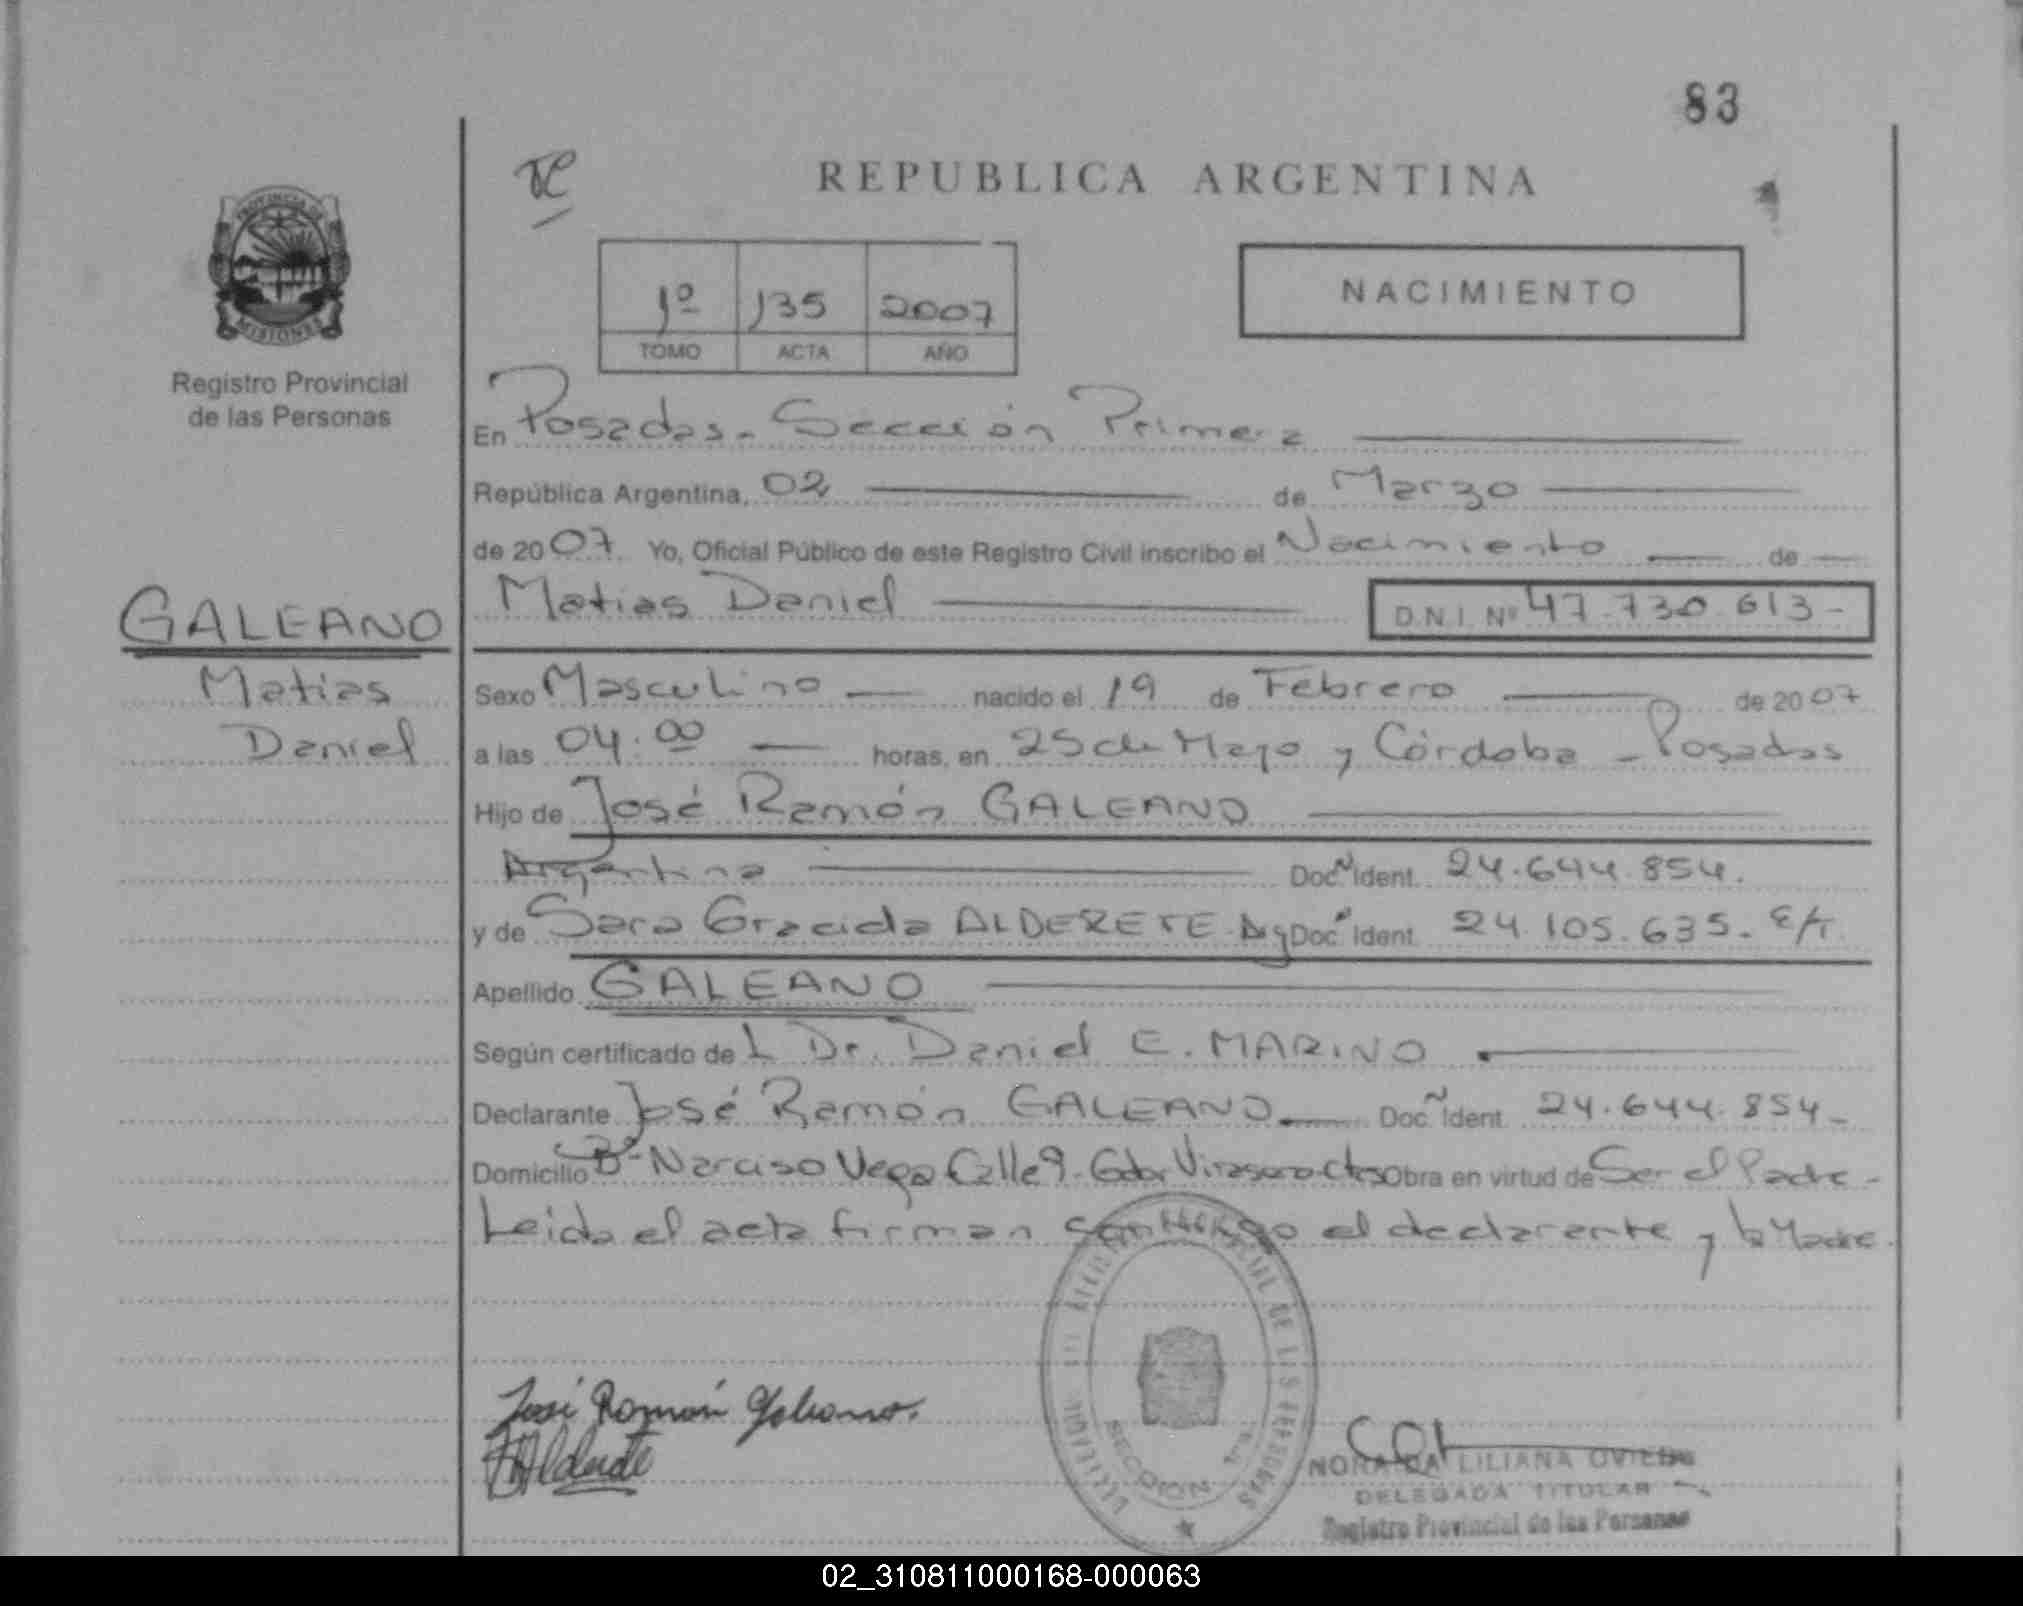 83
REPUBLICA ARGENTINA
PROVINCIA DE
MISIONES
Registro Provincial
de las Personas
1º 135 2007
TOMO ACTA AÑO
NACIMIENTO
En Posadas - Sección Primera
República Argentina, 02 de Marzo
de 2007. Yo, Oficial Público de este Registro Civil inscribo el Nacimiento de
GALEANO
Matias
Daniel
Matias Daniel D.N.I. Nº 47.730.613-
Sexo Masculino nacido el 19 de Febrero de 2007
a las 04:00 horas, en 25 de Mayo y Córdoba - Posadas
Hijo de José Ramón GALEANO
Argentina Doc. Ident. 24.644.854.
y de Sara Graciela ALDERETE Arg Doc. Ident. 24.105.635. E/T
Apellido GALEANO
Según certificado de L Dr. Daniel E. MARINO
Declarante José Ramón GALEANO Doc. Ident. 24.644.854-
Domicilio Bº Narciso Vega Calle 9 - Gdor Virasoro Ctes Obra en virtud de Ser el Padre -
Leida el acta firman conmigo el declarante y la Madre.
José Ramón Galeano.
Alderete
SECCION
LILIANA OVIEDO
DELEGADA TITULAR
Registro Provincial de las Personas
02_310811000168-000063